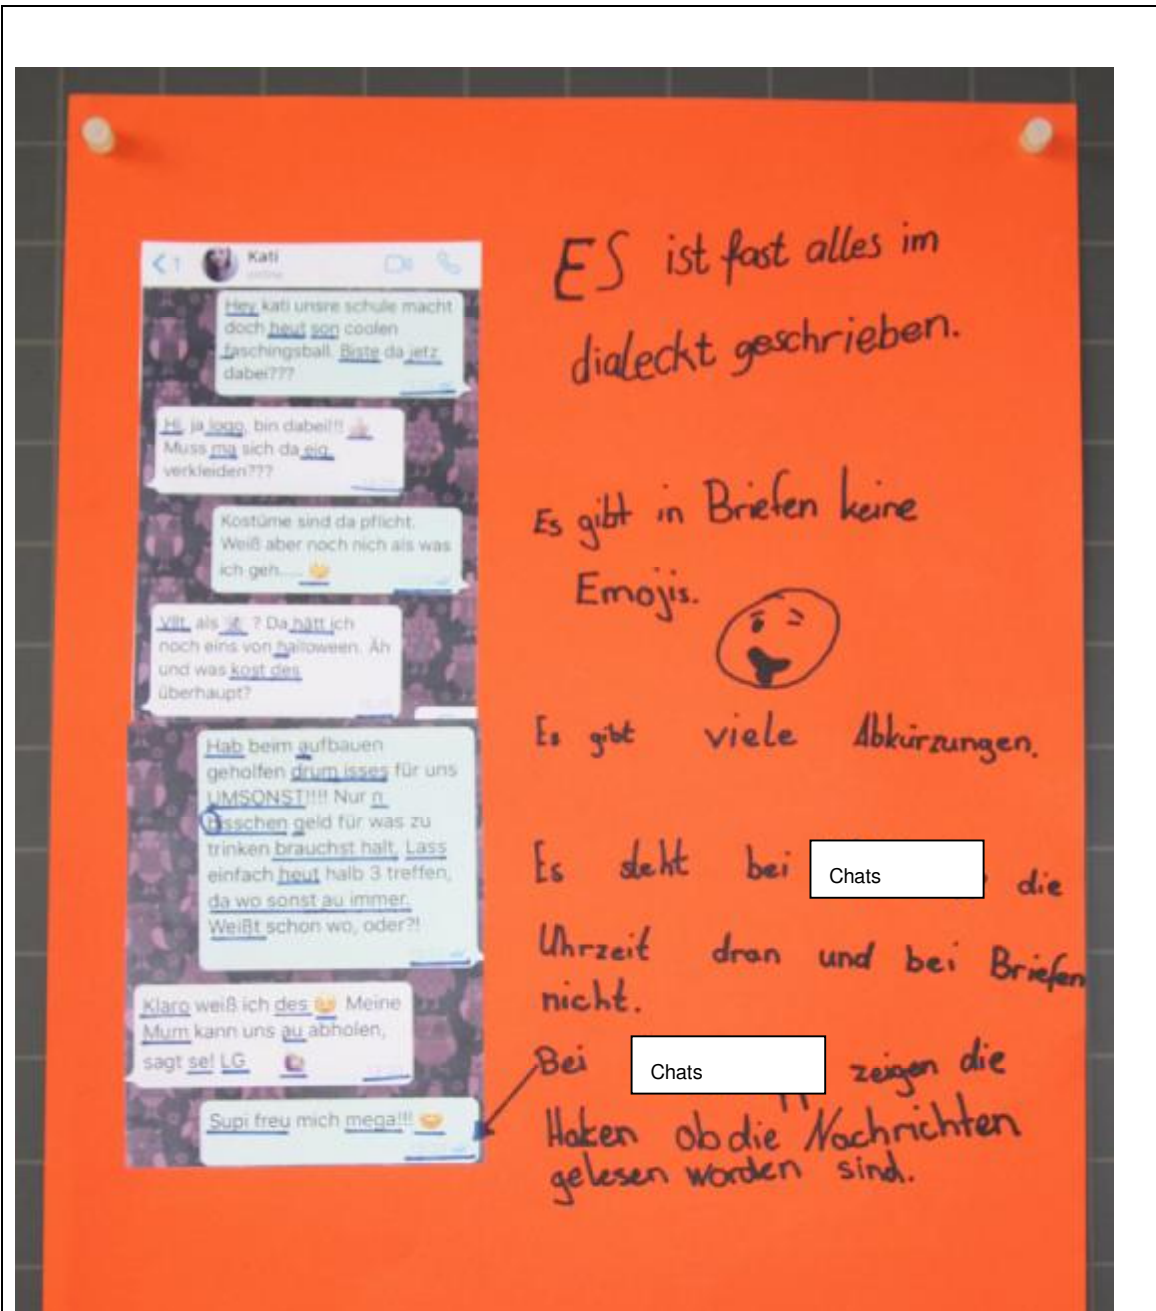 1
Kati
online
Hey kati unsre schule macht
doch heut son coolen
faschingsball. Biste da jetz
dabei???
Hi, ja logo, bin dabei!!!
Muss ma sich da eig.
verkleiden???
Kostüme sind da pflicht.
Weiß aber noch nich als was
ich geh.....
Vllt. als ? Da hätt ich
noch eins von halloween. Äh
und was kost des
überhaupt?
Hab beim aufbauen
geholfen drum isses für uns
UMSONST!!!! Nur n
bisschen geld für was zu
trinken brauchst halt. Lass
einfach heut halb 3 treffen,
da wo sonst au immer.
Weißt schon wo, oder?!
Klaro weiß ich des Meine
Mum kann uns au abholen,
sagt se! LG
Supi freu mich mega!!!
ES ist fast alles im
dialeckt geschrieben.
Es gibt in Briefen keine
Emojis.
Es gibt viele Abkürzungen.
Es steht bei Chats die
Uhrzeit dran und bei Briefen
nicht.
Bei Chats zeigen die
Haken ob die Nachrichten
gelesen worden sind.